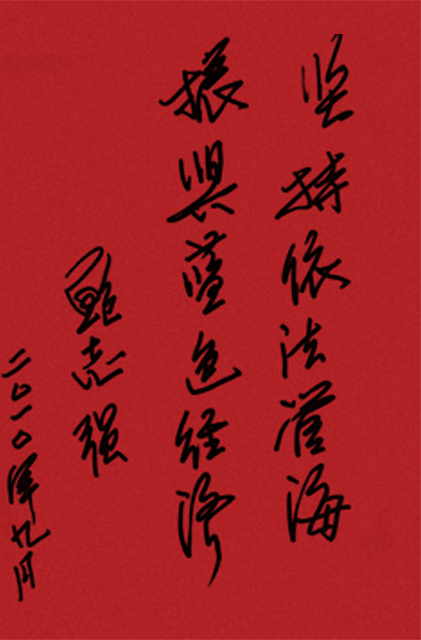 坚持依法管海
振兴蓝色经济
鲍志强
二〇一〇年九月